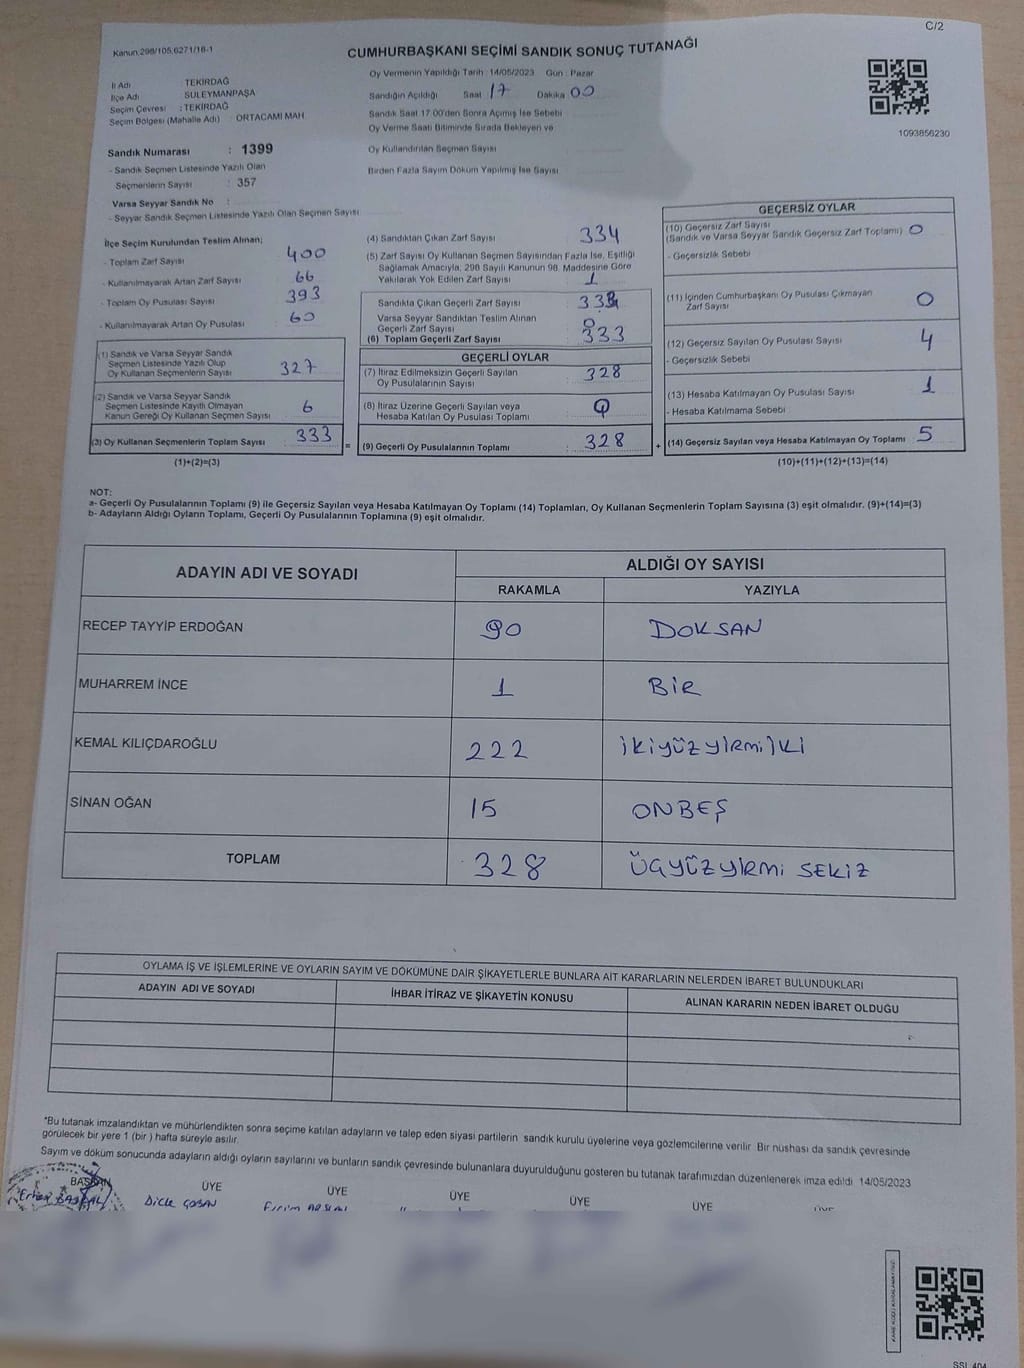 C/2
Kanun:298/105,6271/18-1
CUMHURBAŞKANI SEÇİMİ SANDIK SONUÇ TUTANAĞI
İl Adı : TEKİRDAĞ
İlçe Adı : SÜLEYMANPAŞA
Seçim Çevresi : TEKİRDAĞ
Seçim Bölgesi (Mahalle Adı) : ORTACAMİ MAH.
Oy Vermenin Yapıldığı Tarih : 14/05/2023 Gün : Pazar
Sandığın Açıldığı Saat 17 Dakika 00
Sandık Saat 17.00'den Sonra Açımış İse Sebebi
Oy Verme Saati Bitiminde Sırada Bekleyen ve
Oy Kullandırılan Seçmen Sayısı
Birden Fazla Sayım Döküm Yapılmış İse Sayısı
1093856230
Sandık Numarası : 1399
- Sandık Seçmen Listesinde Yazılı Olan
Seçmenlerin Sayısı : 357
Varsa Seyyar Sandık No :
- Seyyar Sandık Seçmen Listesinde Yazılı Olan Seçmen Sayısı
İlçe Seçim Kurulundan Teslim Alınan;
- Toplam Zarf Sayısı : 400
- Kullanılmayarak Artan Zarf Sayısı : 66
- Toplam Oy Pusulası Sayısı : 393
- Kullanılmayarak Artan Oy Pusulası : 60
(1) Sandık ve Varsa Seyyar Sandık
Seçmen Listesinde Yazılı Olup
Oy Kullanan Seçmenlerin Sayısı : 327
(2) Sandık ve Varsa Seyyar Sandık
Seçmen Listesinde Kayıtlı Olmayan
Kanun Gereği Oy Kullanan Seçmen Sayısı : 6
(3) Oy Kullanan Seçmenlerin Toplam Sayısı : 333
(1)+(2)=(3)
(4) Sandıktan Çıkan Zarf Sayısı : 334
(5) Zarf Sayısı Oy Kullanan Seçmen Sayısından Fazla İse, Eşitliği
Sağlamak Amacıyla, 298 Sayılı Kanunun 98. Maddesine Göre
Yakılarak Yok Edilen Zarf Sayısı : 1
Sandıkta Çıkan Geçerli Zarf Sayısı : 333
Varsa Seyyar Sandıktan Teslim Alınan
Geçerli Zarf Sayısı : 0
(6) Toplam Geçerli Zarf Sayısı : 333
GEÇERLİ OYLAR
(7) İtiraz Edilmeksizin Geçerli Sayılan
Oy Pusulalarının Sayısı : 328
(8) İtiraz Üzerine Geçerli Sayılan veya
Hesaba Katılan Oy Pusulası Toplamı : 0
= (9) Geçerli Oy Pusulalarının Toplamı : 328
GEÇERSİZ OYLAR
(10) Geçersiz Zarf Sayısı
(Sandık ve Varsa Seyyar Sandık Geçersiz Zarf Toplamı) : 0
- Geçersizlik Sebebi
(11) İçinden Cumhurbaşkanı Oy Pusulası Çıkmayan
Zarf Sayısı : 0
(12) Geçersiz Sayılan Oy Pusulası Sayısı : 4
- Geçersizlik Sebebi
(13) Hesaba Katılmayan Oy Pusulası Sayısı : 1
- Hesaba Katılmama Sebebi
+ (14) Geçersiz Sayılan veya Hesaba Katılmayan Oy Toplamı : 5
(10)+(11)+(12)+(13)=(14)
NOT:
a- Geçerli Oy Pusulalarının Toplamı (9) ile Geçersiz Sayılan veya Hesaba Katılmayan Oy Toplamı (14) Toplamları, Oy Kullanan Seçmenlerin Toplam Sayısına (3) eşit olmalıdır. (9)+(14)=(3)
b- Adayların Aldığı Oyların Toplamı, Geçerli Oy Pusulalarının Toplamına (9) eşit olmalıdır.
ADAYIN ADI VE SOYADI
ALDIĞI OY SAYISI
RAKAMLA YAZIYLA
RECEP TAYYİP ERDOĞAN 90 DOKSAN
MUHARREM İNCE 1 BİR
KEMAL KILIÇDAROĞLU 222 İKİYÜZYİRMİİKİ
SİNAN OĞAN 15 ONBEŞ
TOPLAM 328 ÜÇYÜZYİRMİ SEKİZ
OYLAMA İŞ VE İŞLEMLERİNE VE OYLARIN SAYIM VE DÖKÜMÜNE DAİR ŞİKAYETLERLE BUNLARA AİT KARARLARIN NELERDEN İBARET BULUNDUKLARI
ADAYIN ADI VE SOYADI İHBAR İTİRAZ VE ŞİKAYETİN KONUSU ALINAN KARARIN NEDEN İBARET OLDUĞU
*Bu tutanak imzalandıktan ve mühürlendikten sonra seçime katılan adayların ve talep eden siyasi partilerin sandık kurulu üyelerine veya gözlemcilerine verilir. Bir nüshası da sandık çevresinde
görülecek bir yere 1 (bir ) hafta süreyle asılır.
Sayım ve döküm sonucunda adayların aldığı oyların sayılarını ve bunların sandık çevresinde bulunanlara duyurulduğunu gösteren bu tutanak tarafımızdan düzenlenerek imza edildi. 14/05/2023
BAŞKAN ÜYE ÜYE ÜYE ÜYE ÜYE ÜYE
Dicle ÇOBAN